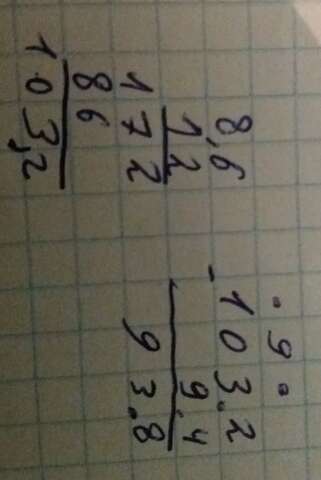 8,6
12
172
86
103,2
. 9 .
- 103.2
9.4
93.8